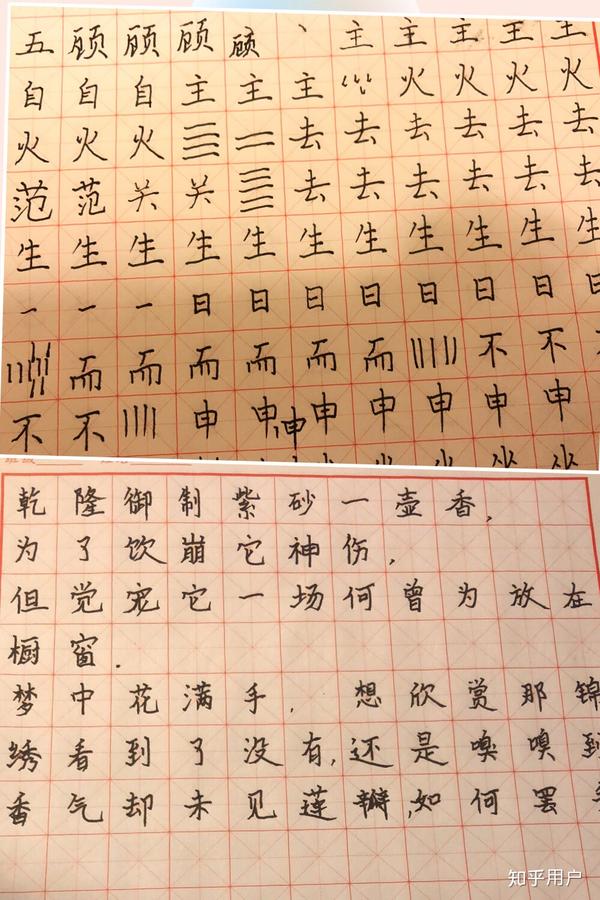 五 顾 顾 顾 顾 丶 主 主 主 主 主
自 自 自 主 主 主 火 火 火 火
火 火 火 三 二 去 去 去 去 去 去
范 范 关 关 去 去 去 去 去 去
生 生 生 生 生 生 生 生 生 生 生
一 一 一 日 日 日 日 日 日 日 日
而 而 而 而 而 而 不 不
不 不 申 申 申 申 申 申 申 申
乾隆御制紫砂一壶香,
为了饮崩它神伤,
但觉宠它一场何曾为放在
橱窗.
梦中花满手, 想欣赏那锦
绣看到了没有,还是嗅嗅到
香气却未见莲瓣,如何罢
知乎用户